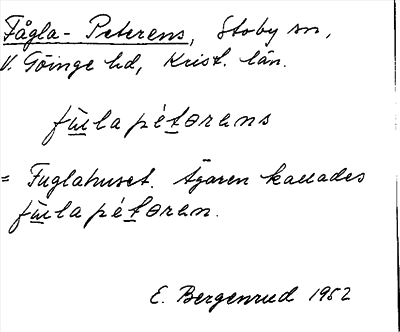 Fågla-Peterens, Stoby sn,
V. Göinge hd, Krist. län.
fùla pétərens
= Fuglahuset. Ägaren kallades
fùla pétəren.
E. Bergenrud 1952